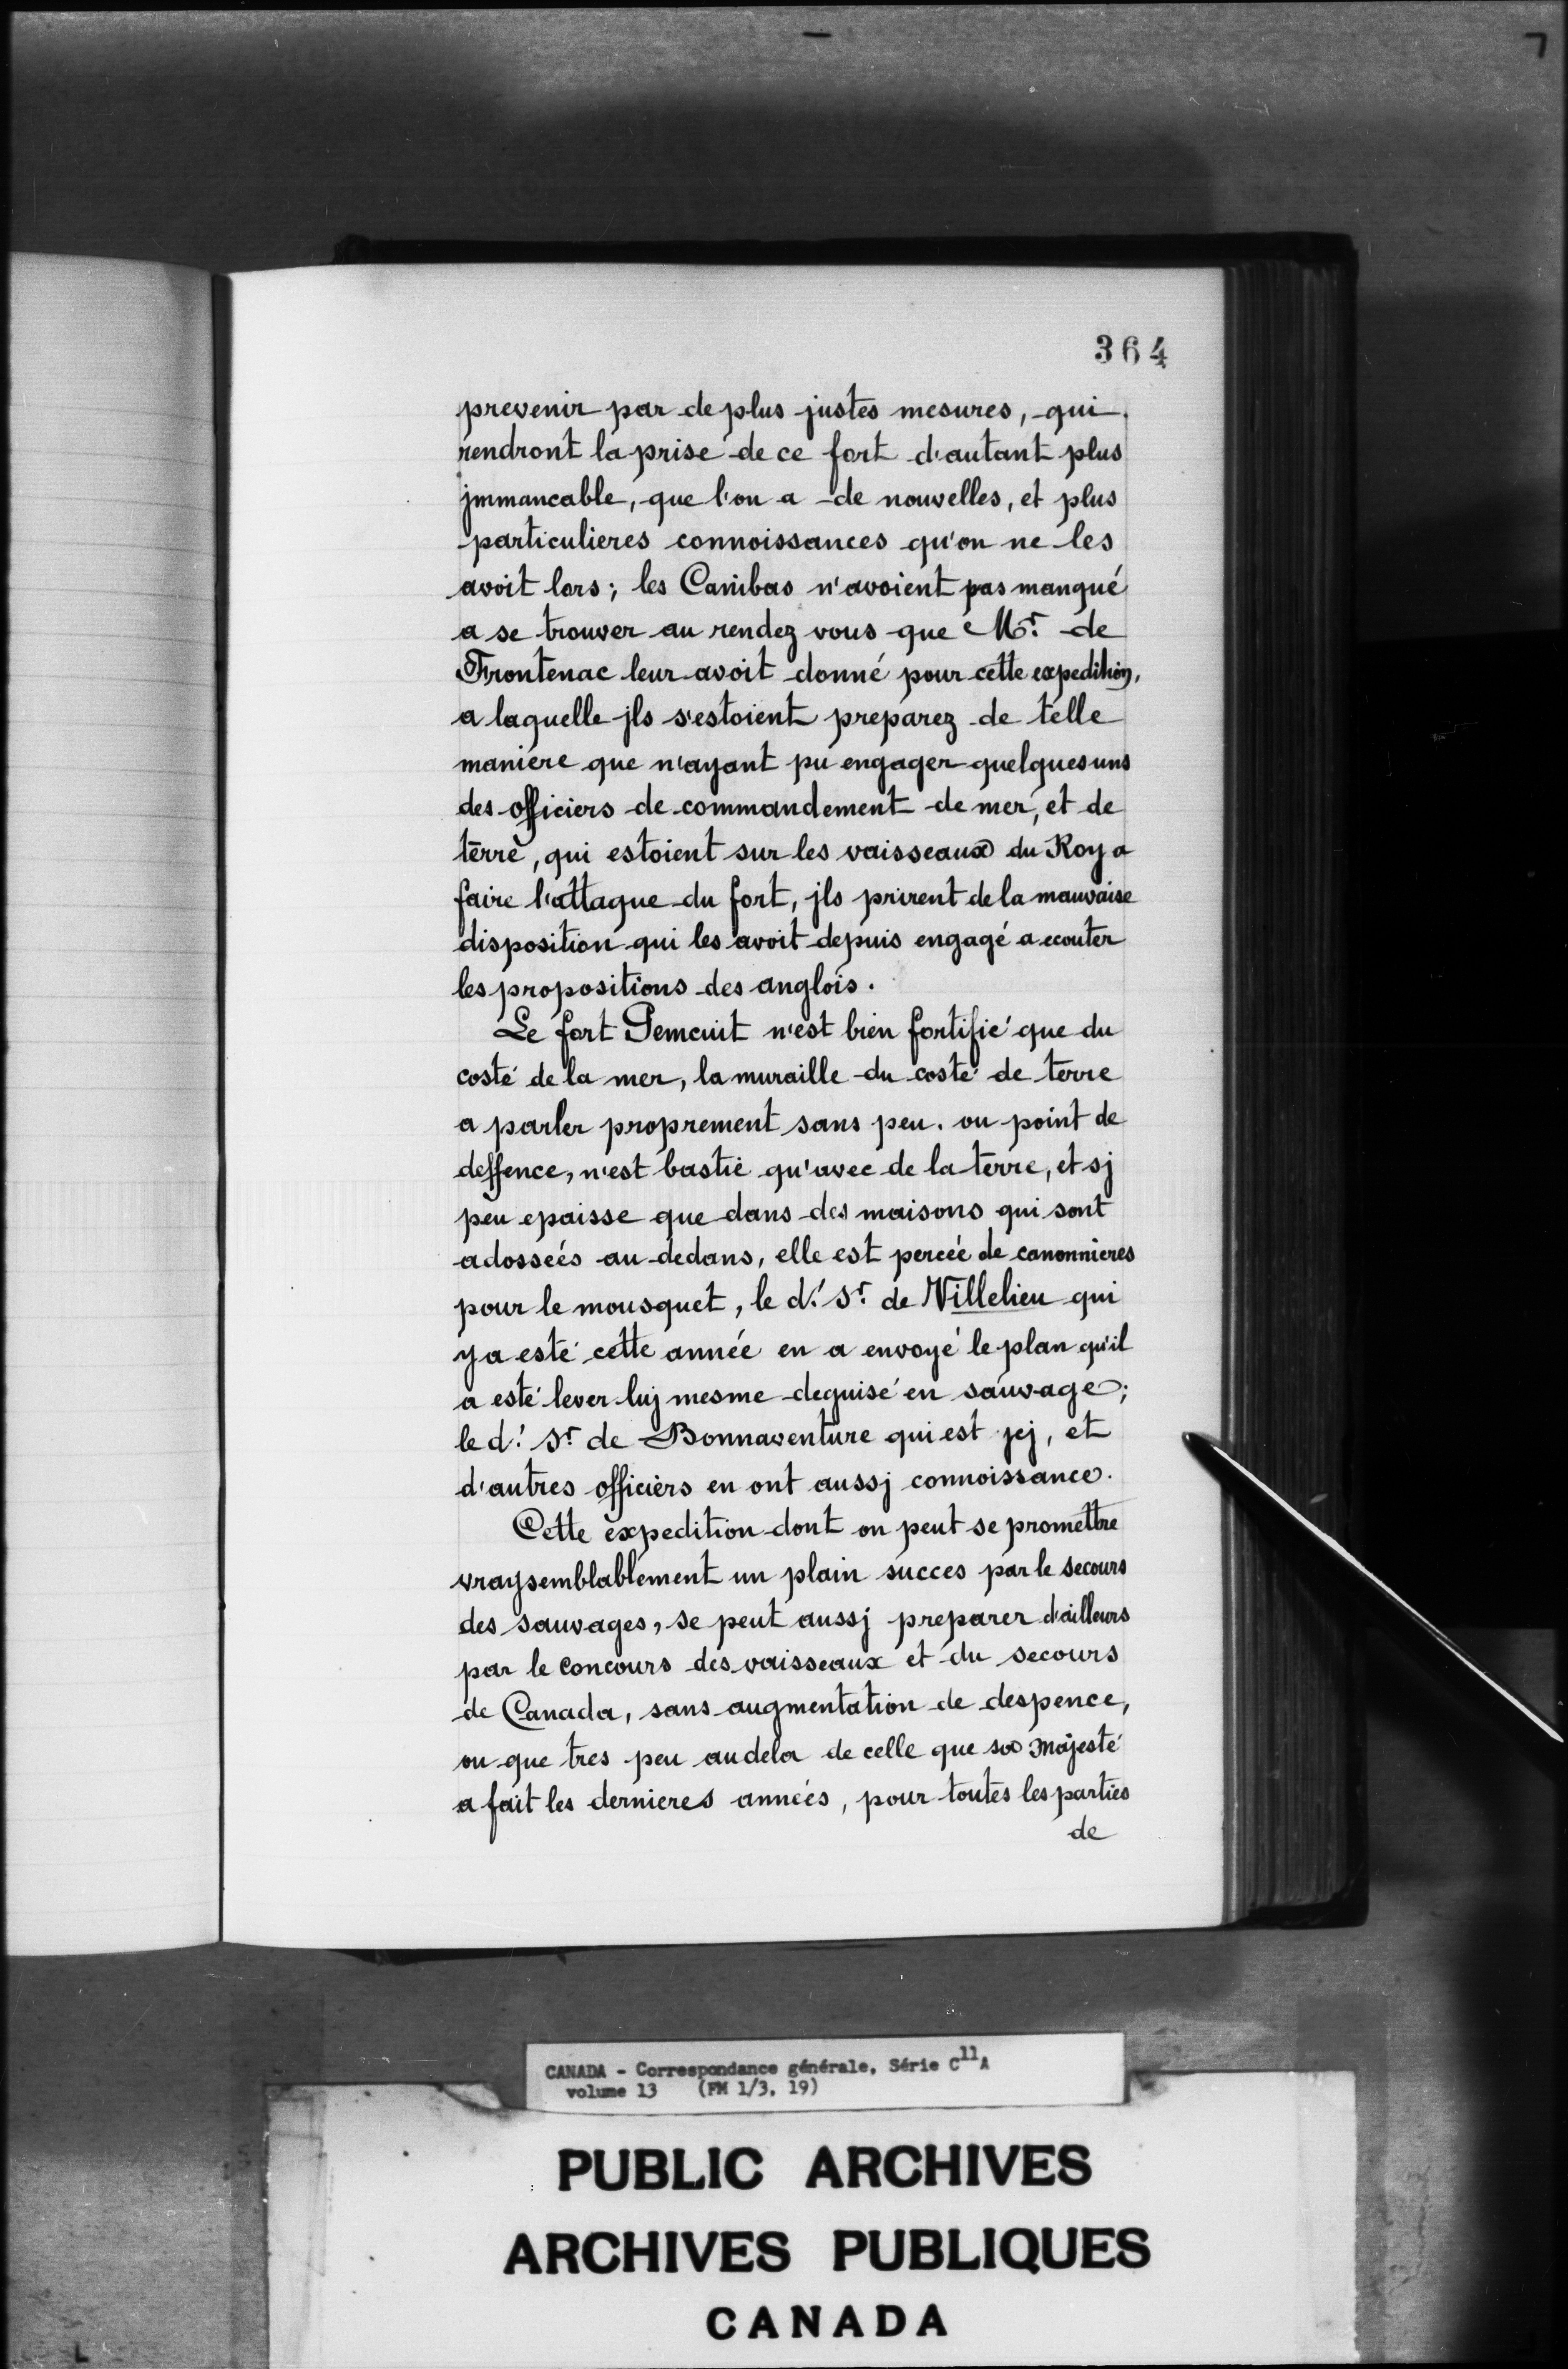 364
prevenir par de plus justes mesures, qui
rendront la prise de ce fort d'autant plus
jmmancable, que l'on a de nouvelles, et plus
particulieres connoissances qu'on ne les
avoit lors; les Canibas n'avoient pas manqué
a se trouver au rendez vous que Mr. de
Frontenac leur avoit donné pour cette expedition,
a laquelle jls s'estoient preparez de telle
maniere que n'ayant pu engager quelques uns
des officiers de commandement de mer, et de
terre, qui estoient sur les vaisseaux du Roy a
faire l'attaque du fort, jls prirent de la mauvaise
disposition qui les avoit depuis engagé a ecouter
les propositions des anglois.
Le fort Pemcuit n'est bien fortifié que du
costé de la mer, la muraille du costé de terre
a parler proprement sans peu. ou point de
deffence, n'est bastie qu'avec de la terre, et sj
peu epaisse que dans des maisons qui sont
adosseés au dedans, elle est perceé de canonnieres
pour le mousquet, le d.t Sr. de Villelieu qui
y a esté cette année en a envoyé le plan qu'il
a esté lever luj mesme deguisé en sauvage;
le d.t Sr. de Bonnaventure qui est jcj, et
d'autres officiers en ont aussj connoissance.
Cette expedition dont on peut se promettre
vraysemblablement un plain succes par le secours
des sauvages, se peut aussj preparer d'ailleurs
par le concours des vaisseaux et du secours
de Canada, sans augmentation de despence,
ou que tres peu au dela de celle que sa Majesté
a fait les dernieres anneés, pour toutes les parties
de
CANADA - Correspondance générale, Série C11A
volume 13 (FM 1/3, 19)
PUBLIC ARCHIVES
ARCHIVES PUBLIQUES
CANADA